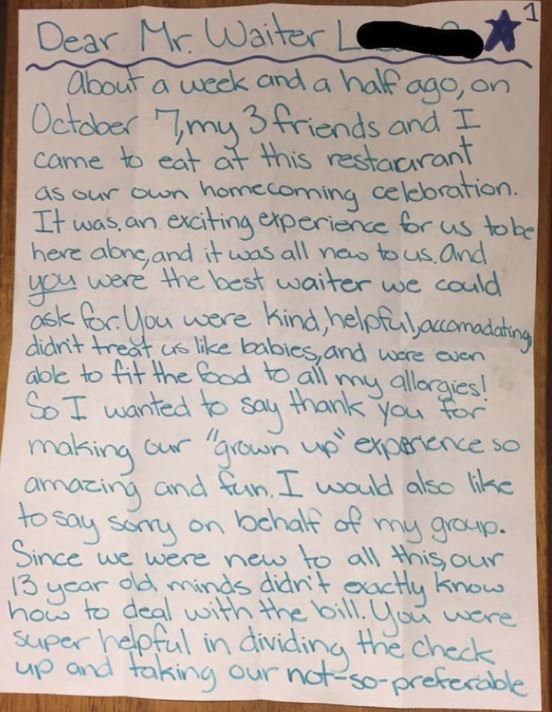 1
Dear Mr. Waiter L
About a week and a half ago, on
October 7, my 3 friends and I
came to eat at this restaurant
as our own homecoming celebration.
It was an exciting experience for us to be
here alone, and it was all new to us. And
you were the best waiter we could
ask for. You were kind, helpful, accomadating,
didn't treat us like babies, and were even
able to fit the food to all my allergies!
So I wanted to say thank you for
making our "grown up" experience so
amazing and fun. I would also like
to say sorry on behalf of my group.
Since we were new to all this, our
13 year old minds didn't exactly know
how to deal with the bill. You were
super helpful in dividing the check
up and taking our not-so-preferable